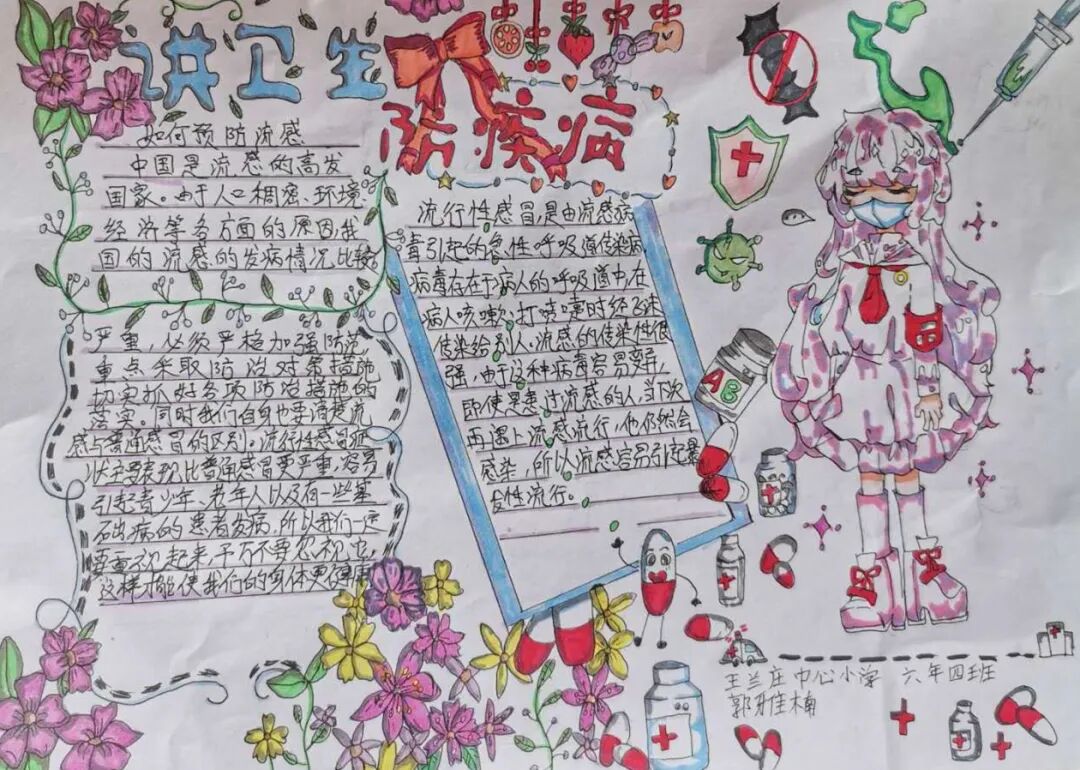 讲卫生
防疾病
如何预防流感
中国是流感的高发
国家。由于人口稠密、环境
经济等多方面的原因我
国的流感的发病情况比较
严重，必须严格加强防范
重点采取防治对策措施
切实抓好各项防治措施的
落实。同时我们自身也要清楚流
感与普通感冒的区别，流行性感冒症
状主要表现比普通感冒更严重，容易
引起青少年、老年人以及有一些基
石出病的患者发病，所以我们一定
要重视起来，千万不要忽视它，
这样才能使我们的身体更健康
流行性感冒，是由流感病
毒引起的急性呼吸道传染病
病毒存在于病人的呼吸道中，在
病人咳嗽，打喷嚏时经飞沫
传染给别人，流感的传染性很
强，由于这种病毒容易变异，
即使患过流感的人，当下次
再遇上流感流行，他仍然会
感染，所以流感容易引起暴
发性流行。
AB
王兰庄中心小学 六年四班
郭雅楠